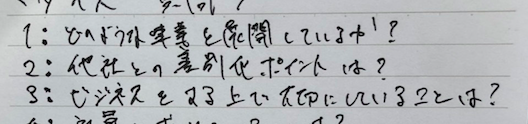 1：どのような事業を展開しているか？
2：他社との差別化ポイントは？
3：ビジネスをする上で大切にしていることは？